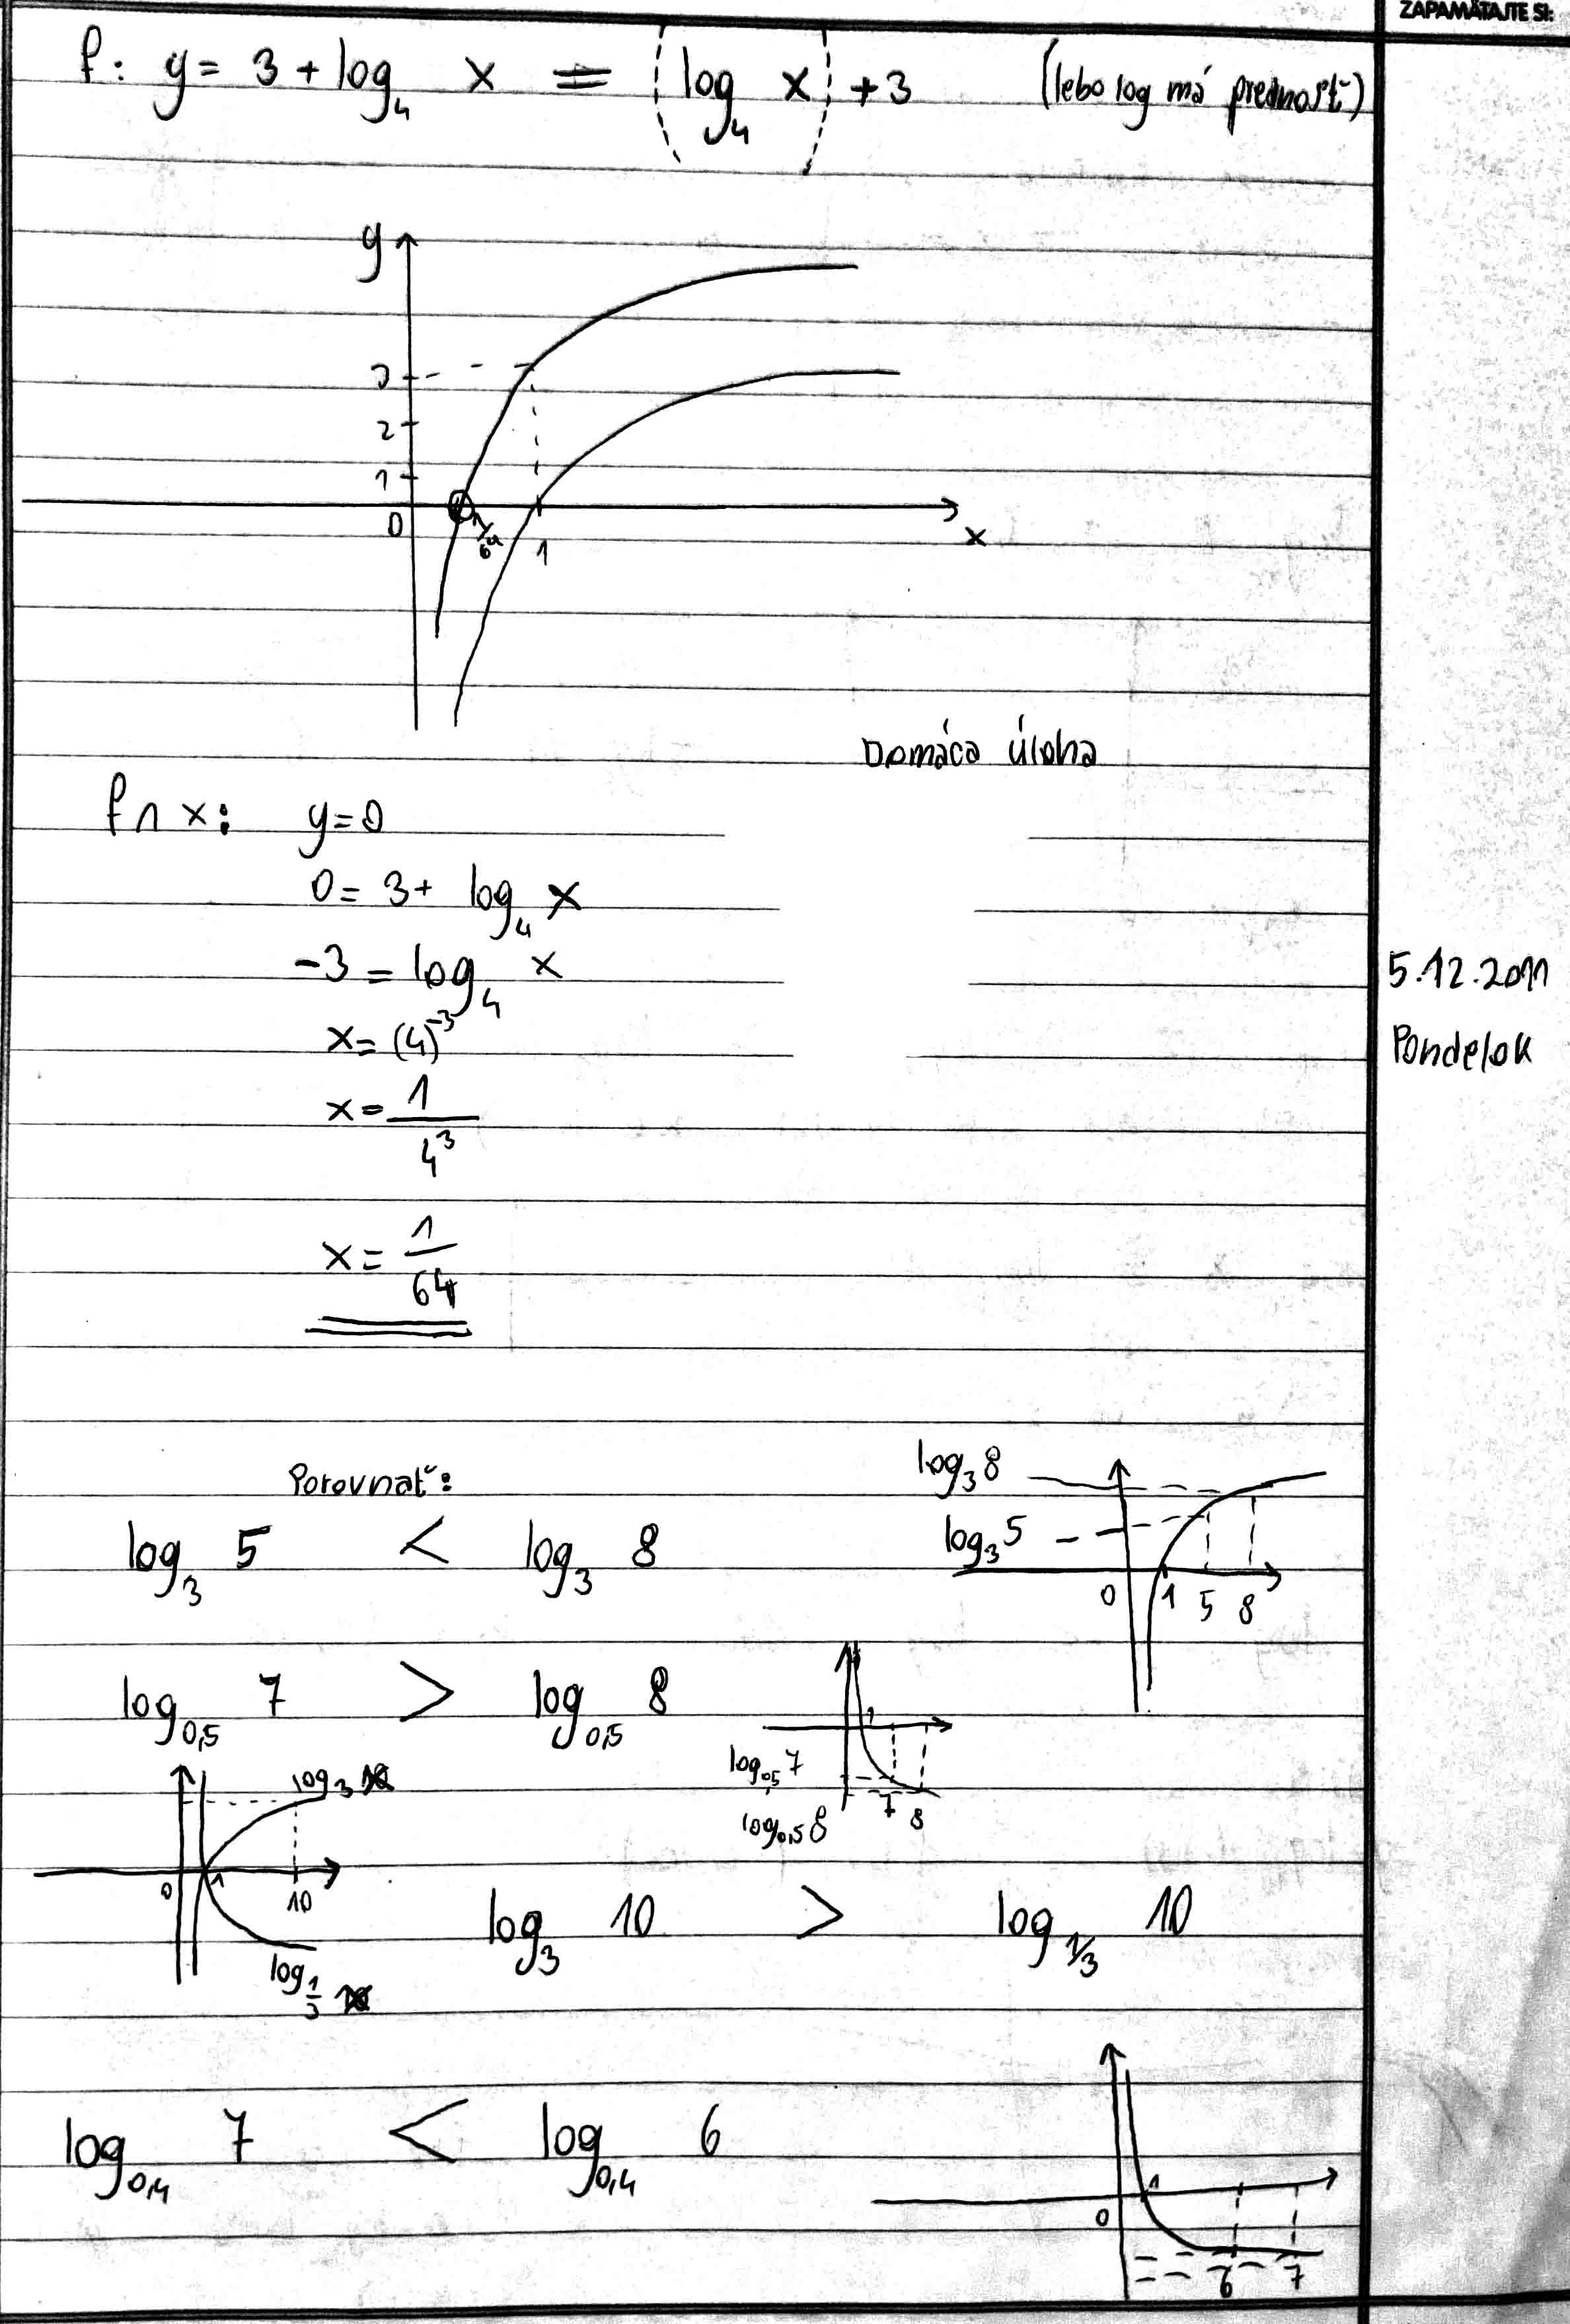 ZAPAMÄTAJTE SI:
f: y = 3 + log₄ x = (log₄ x) + 3 (lebo log má prednosť)
y
3
2
1
0 1/64 1 x
Domáca úloha
f ∩ x: y = 0
0 = 3 + log₄ x
-3 = log₄ x
5.12.2011
x = (4)⁻³
Pondelok
x = 1/4³
x = 1/64
Porovnať:
log₃ 8
log₃ 5 < log₃ 8
log₃ 5
0 1 5 8
log₀,₅ 7 > log₀,₅ 8
1
log₀,₅ 7
7 8
log₀,₅ 8
log₃
0 1 10
log₃ 10 > log₁/₃ 10
log₁/₃
log₀,₄ 7 < log₀,₄ 6
1
0
6 7